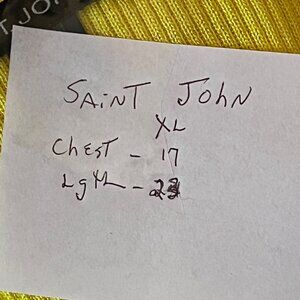 T JO
SAINT JOHN
XL
CHEST - 17
LgTH -